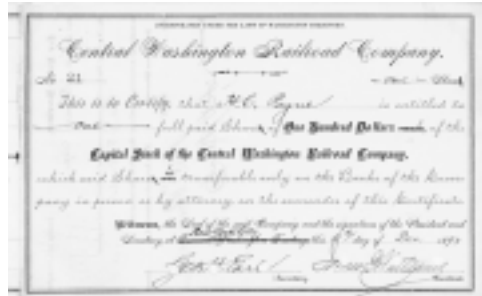 INCORPORATED UNDER THE LAWS OF WASHINGTON TERRITORY
Central Washington Railroad Company.
No 21 one Share
This is to Certify, that H.C. Payne is entitled to
one full paid Share of One Hundred Dollars each of the
Capital Stock of the Central Washington Railroad Company,
which said Share is transferable only on the Books of the Com-
pany in person or by attorney on the surrender of this Certificate
Witness, the Seal of the said Company and the signatures of the President and
Secretary at this day of Dec 1890
Geo. H. Earl
Secretary President